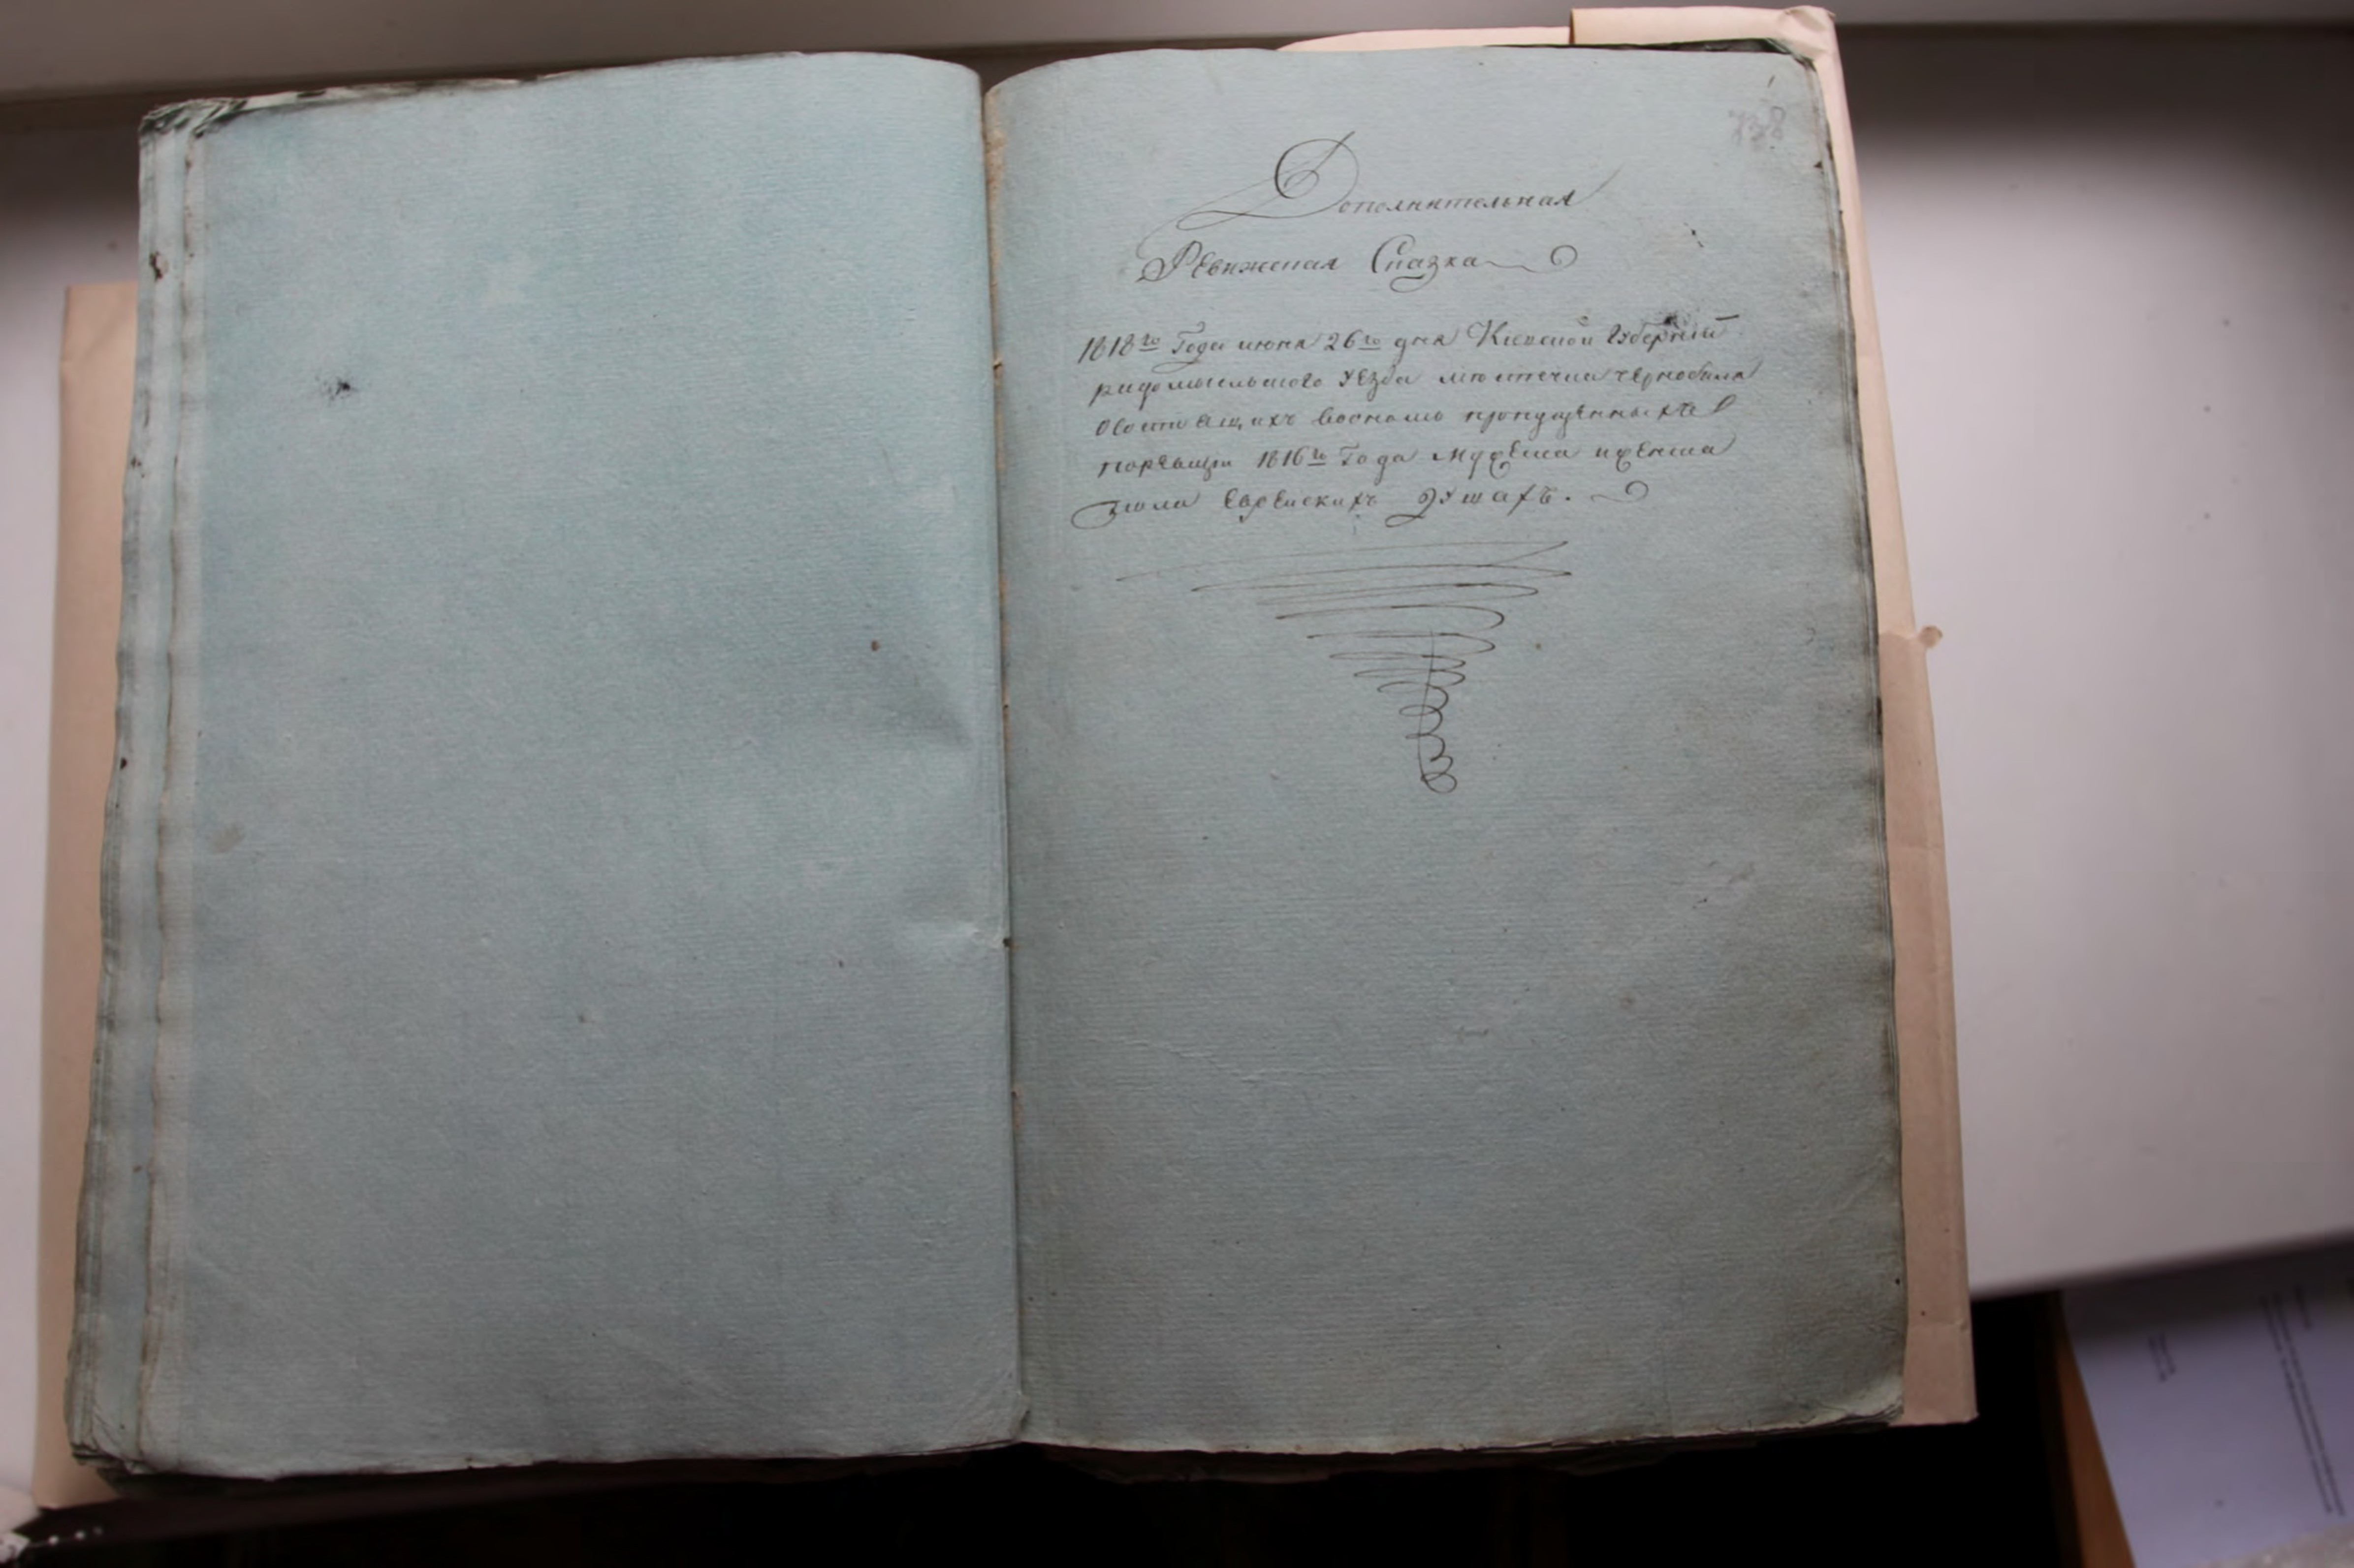 738
Дополнительная
Ревижская Сказка
1818го Года июня 26го дня Киевской Губернии
радомысльского уезда местечка чернобыля
О состоящих вновь пропущенных в
поревизии 1816го Года мужеска иженска
пола Еврейскихъ Душахъ.